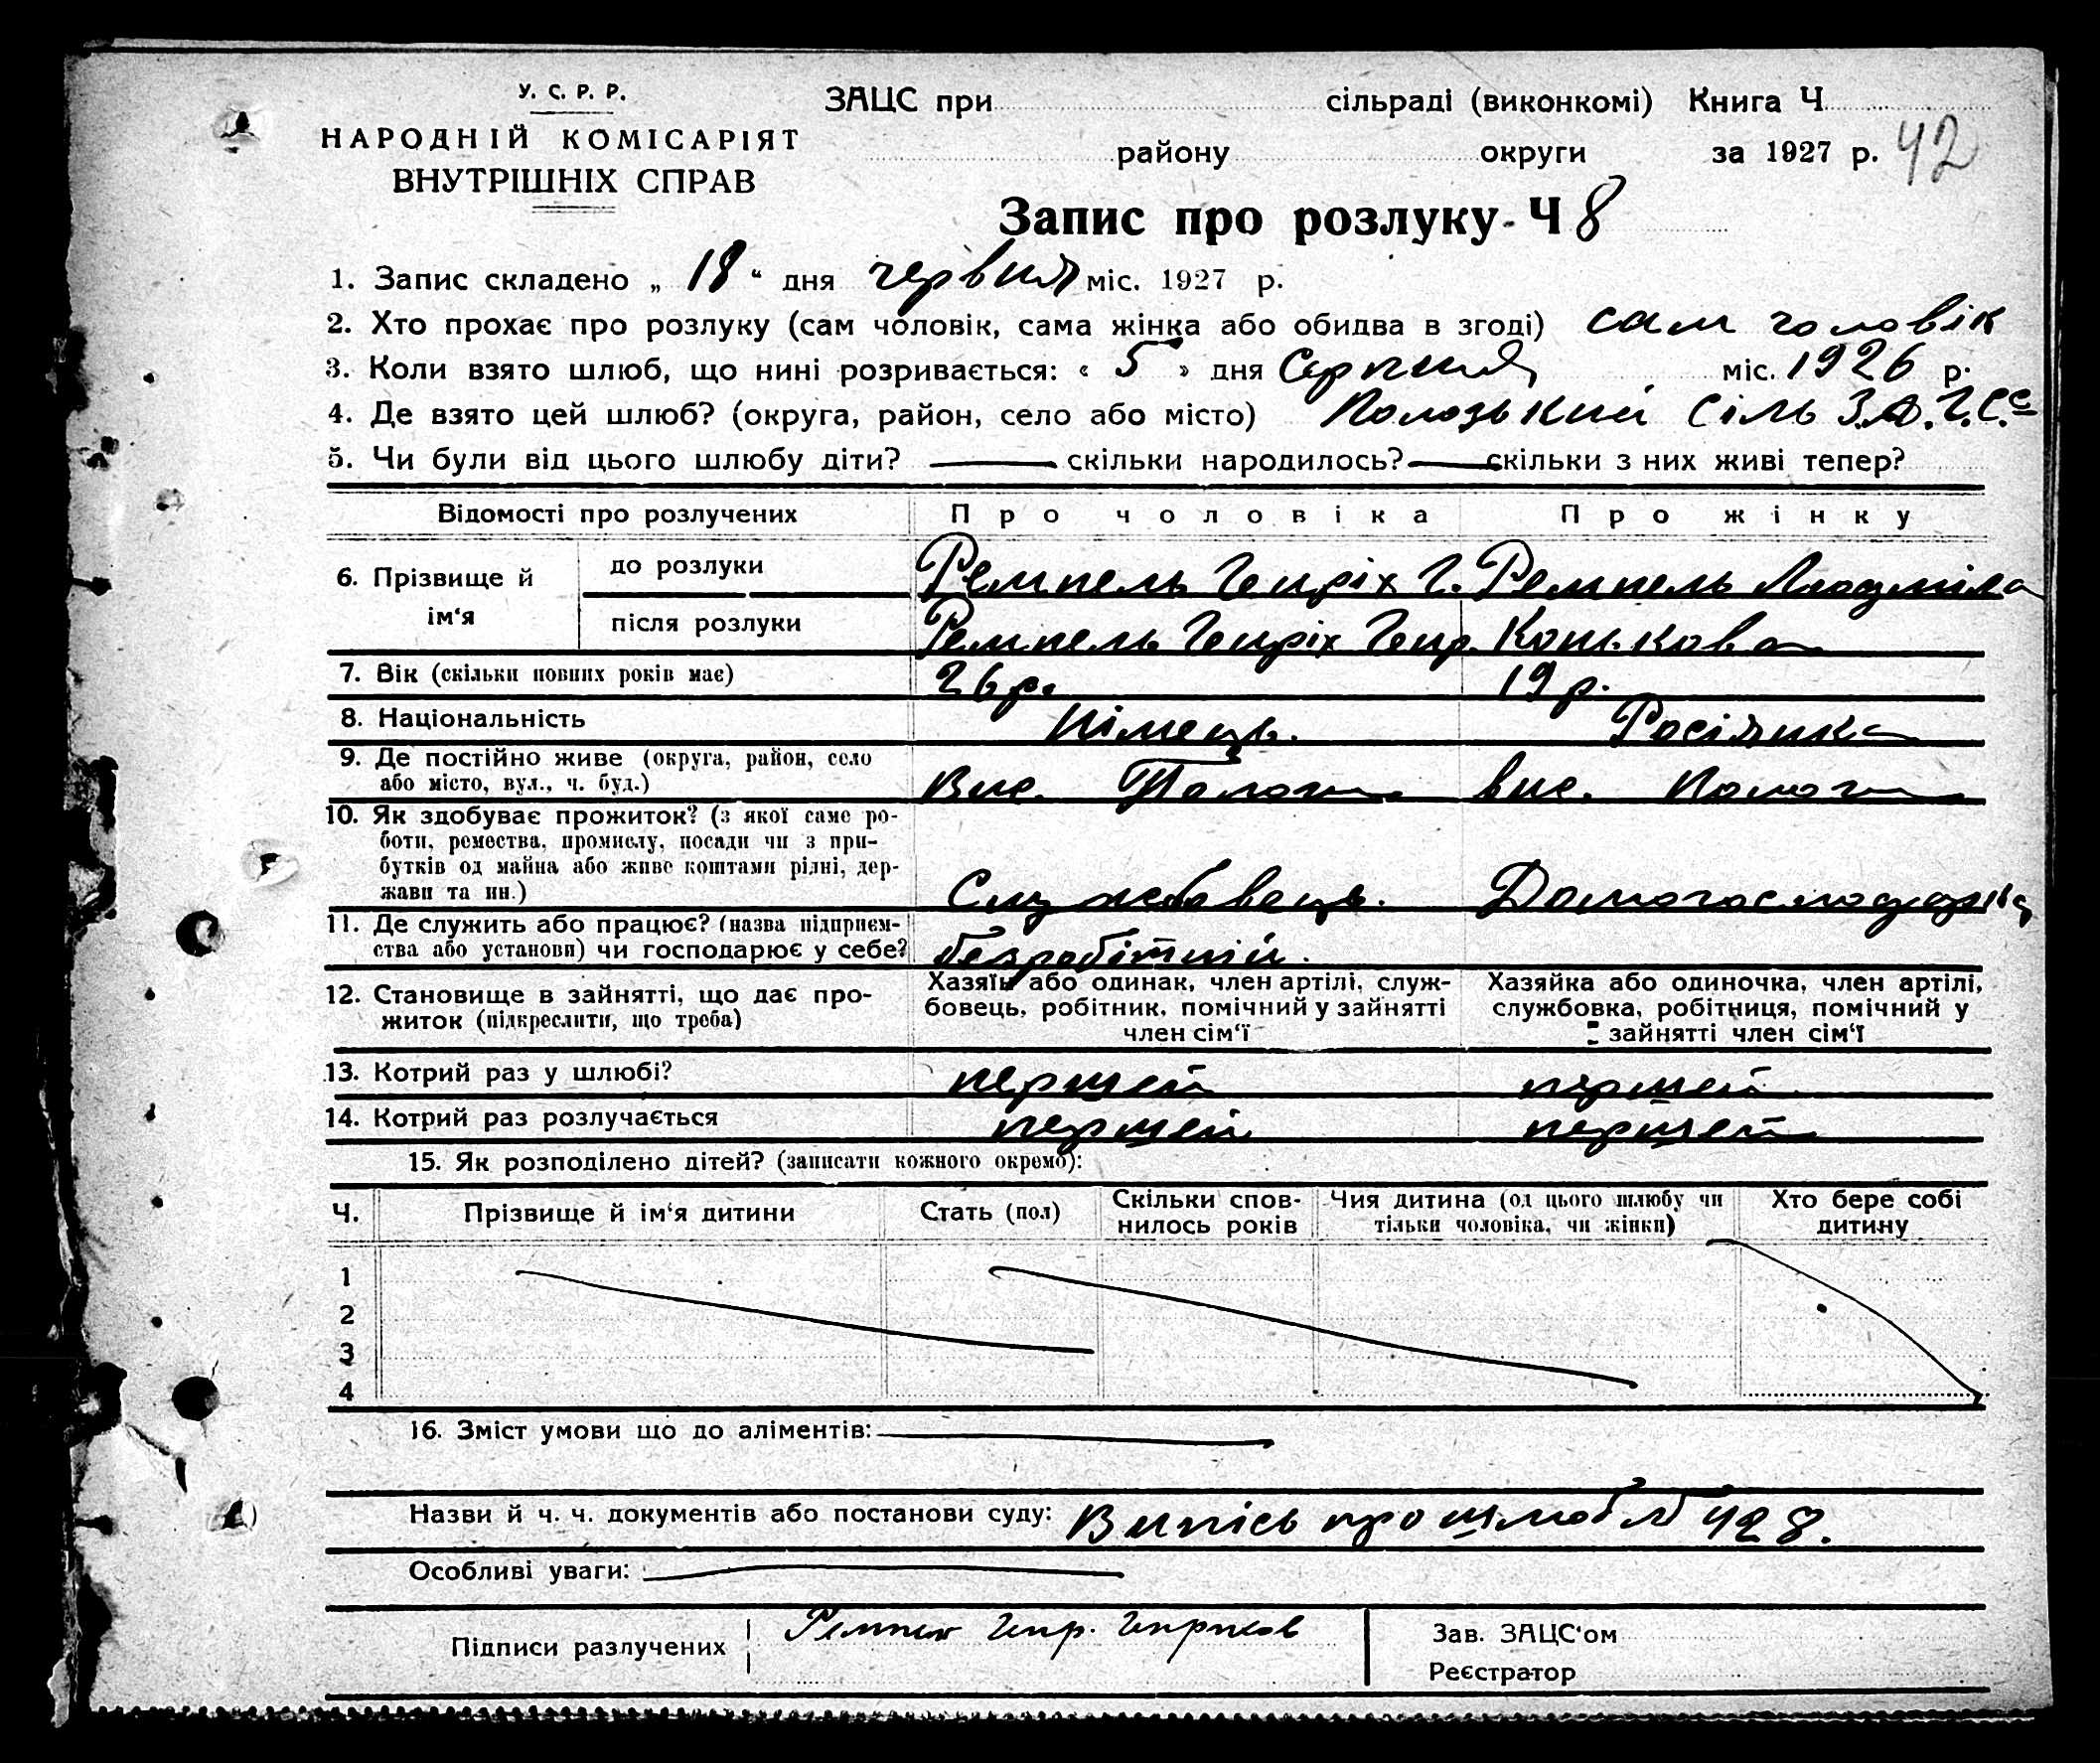 У. С. Р. Р.
НАРОДНІЙ КОМІСАРІЯТ
ВНУТРІШНІХ СПРАВ
ЗАЦС при сільраді (виконкомі) Книга Ч
району округи за 1927 р. 42
Запис про розлуку Ч 8
1. Запис складено „ 18 “ дня червня міс. 1927 р.
2. Хто прохає про розлуку (сам чоловік, сама жінка або обидва в згоді) сам чоловік
3. Коли взято шлюб, що нині розривається: « 5 » дня Серпня міс. 1926 р.
4. Де взято цей шлюб? (округа, район, село або місто) Пологзький Сіль З.А.Г.С.
5. Чи були від цього шлюбу діти? — скільки народилось? — скільки з них живі тепер?
Відомості про розлучених Про чоловіка Про жінку
6. Прізвище й ім‘я до розлуки Ремпель Генріх Г. Ремпель Людміла
після розлуки Ремпель Генріх Генр. Конькова
7. Вік (скільки повних років має) 26 р. 19 р.
8. Національність Німець. Росіянка
9. Де постійно живе (округа, район, село
або місто, вул., ч. буд.) Вис. Пологи вис. Пологи
10. Як здобуває прожиток? (з якої саме ро-
боти, ремества, промислу, посади чи з при-
бутків од майна або живе коштами рідні, дер-
жави та ин.) Службовець. Домогосподарка
11. Де служить або працює? (назва підприєм-
ства або установи) чи господарює у себе? безробітний.
12. Становище в зайнятті, що дає про-
житок (підкреслити, що треба)
Хазяїн або одинак, член артілі, служ-
бовець, робітник, помічний у зайнятті
член сім‘ї
Хазяйка або одиночка, член артілі,
службовка, робітниця, помічний у
зайнятті член сім‘ї
13. Котрий раз у шлюбі? першей першей
14. Котрий раз розлучається першей першей
15. Як розподілено дітей? (записати кожного окремо):
Ч. Прізвище й ім‘я дитини Стать (пол) Скільки спов-
нилось років Чия дитина (од цього шлюбу чи
тільки чоловіка, чи жінки) Хто бере собі
дитину
1
2
3
4
16. Зміст умови що до аліментів: —
Назви й ч. ч. документів або постанови суду: Випісь про шлюб № 428.
Особливі уваги: —
Підписи разлучених Ремпель Генр. Генрихов
Зав. ЗАЦС‘ом
Реєстратор